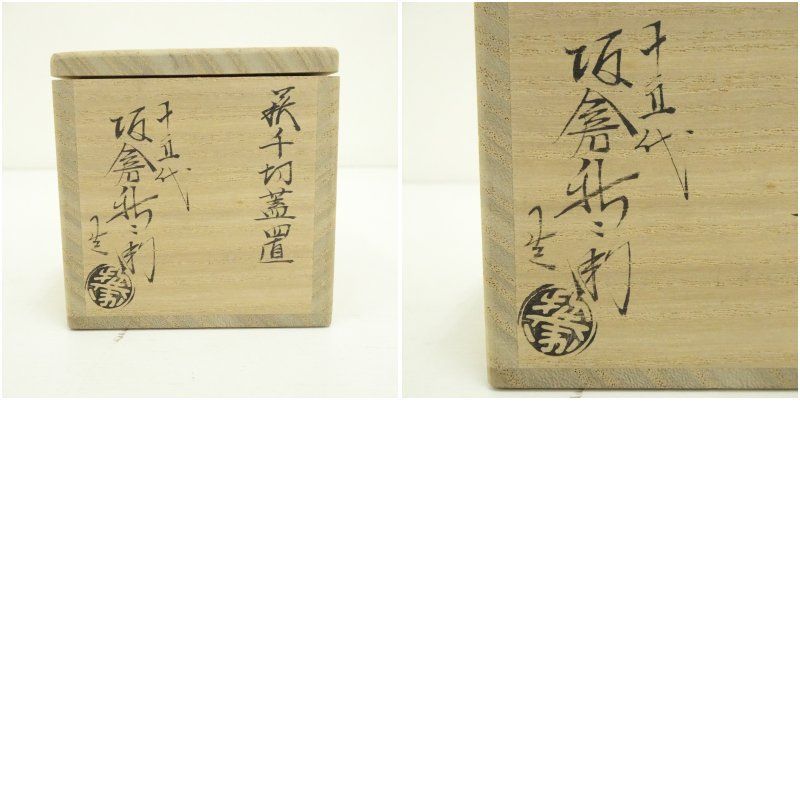 萩千切蓋置
十五代
坂倉新兵衛
造
十五代
坂倉新兵衛
造